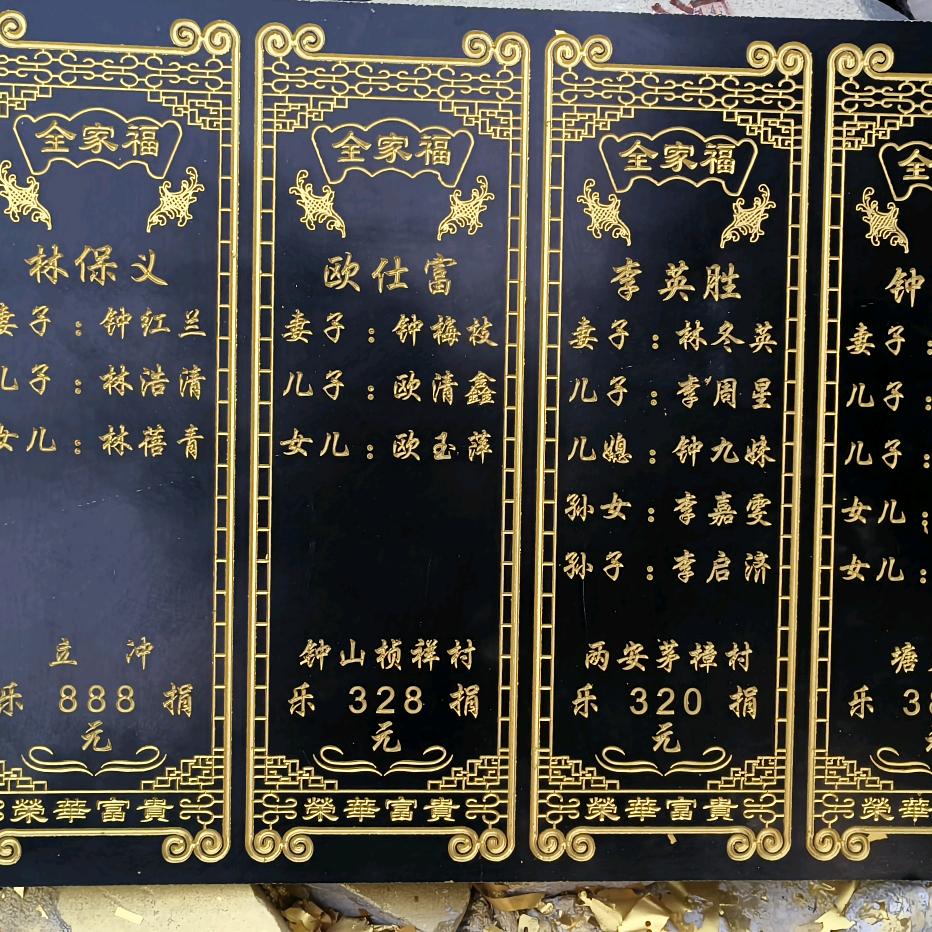 全家福
林保义
妻子：钟红兰
儿子：林浩清
女儿：林蓓青
立 冲
乐 888 捐
元
榮華富貴
全家福
欧仕富
妻子：钟梅枝
儿子：欧清鑫
女儿：欧玉萍
钟山祯祥村
乐 328 捐
元
榮華富貴
全家福
李英胜
妻子：林冬英
儿子：李周星
儿媳：钟九妹
孙女：李嘉雯
孙子：李启济
两安茅樟村
乐 320 捐
元
榮華富貴
全
钟
妻子：
儿子：
儿子：
女儿：
女儿：
塘
乐 3
榮華